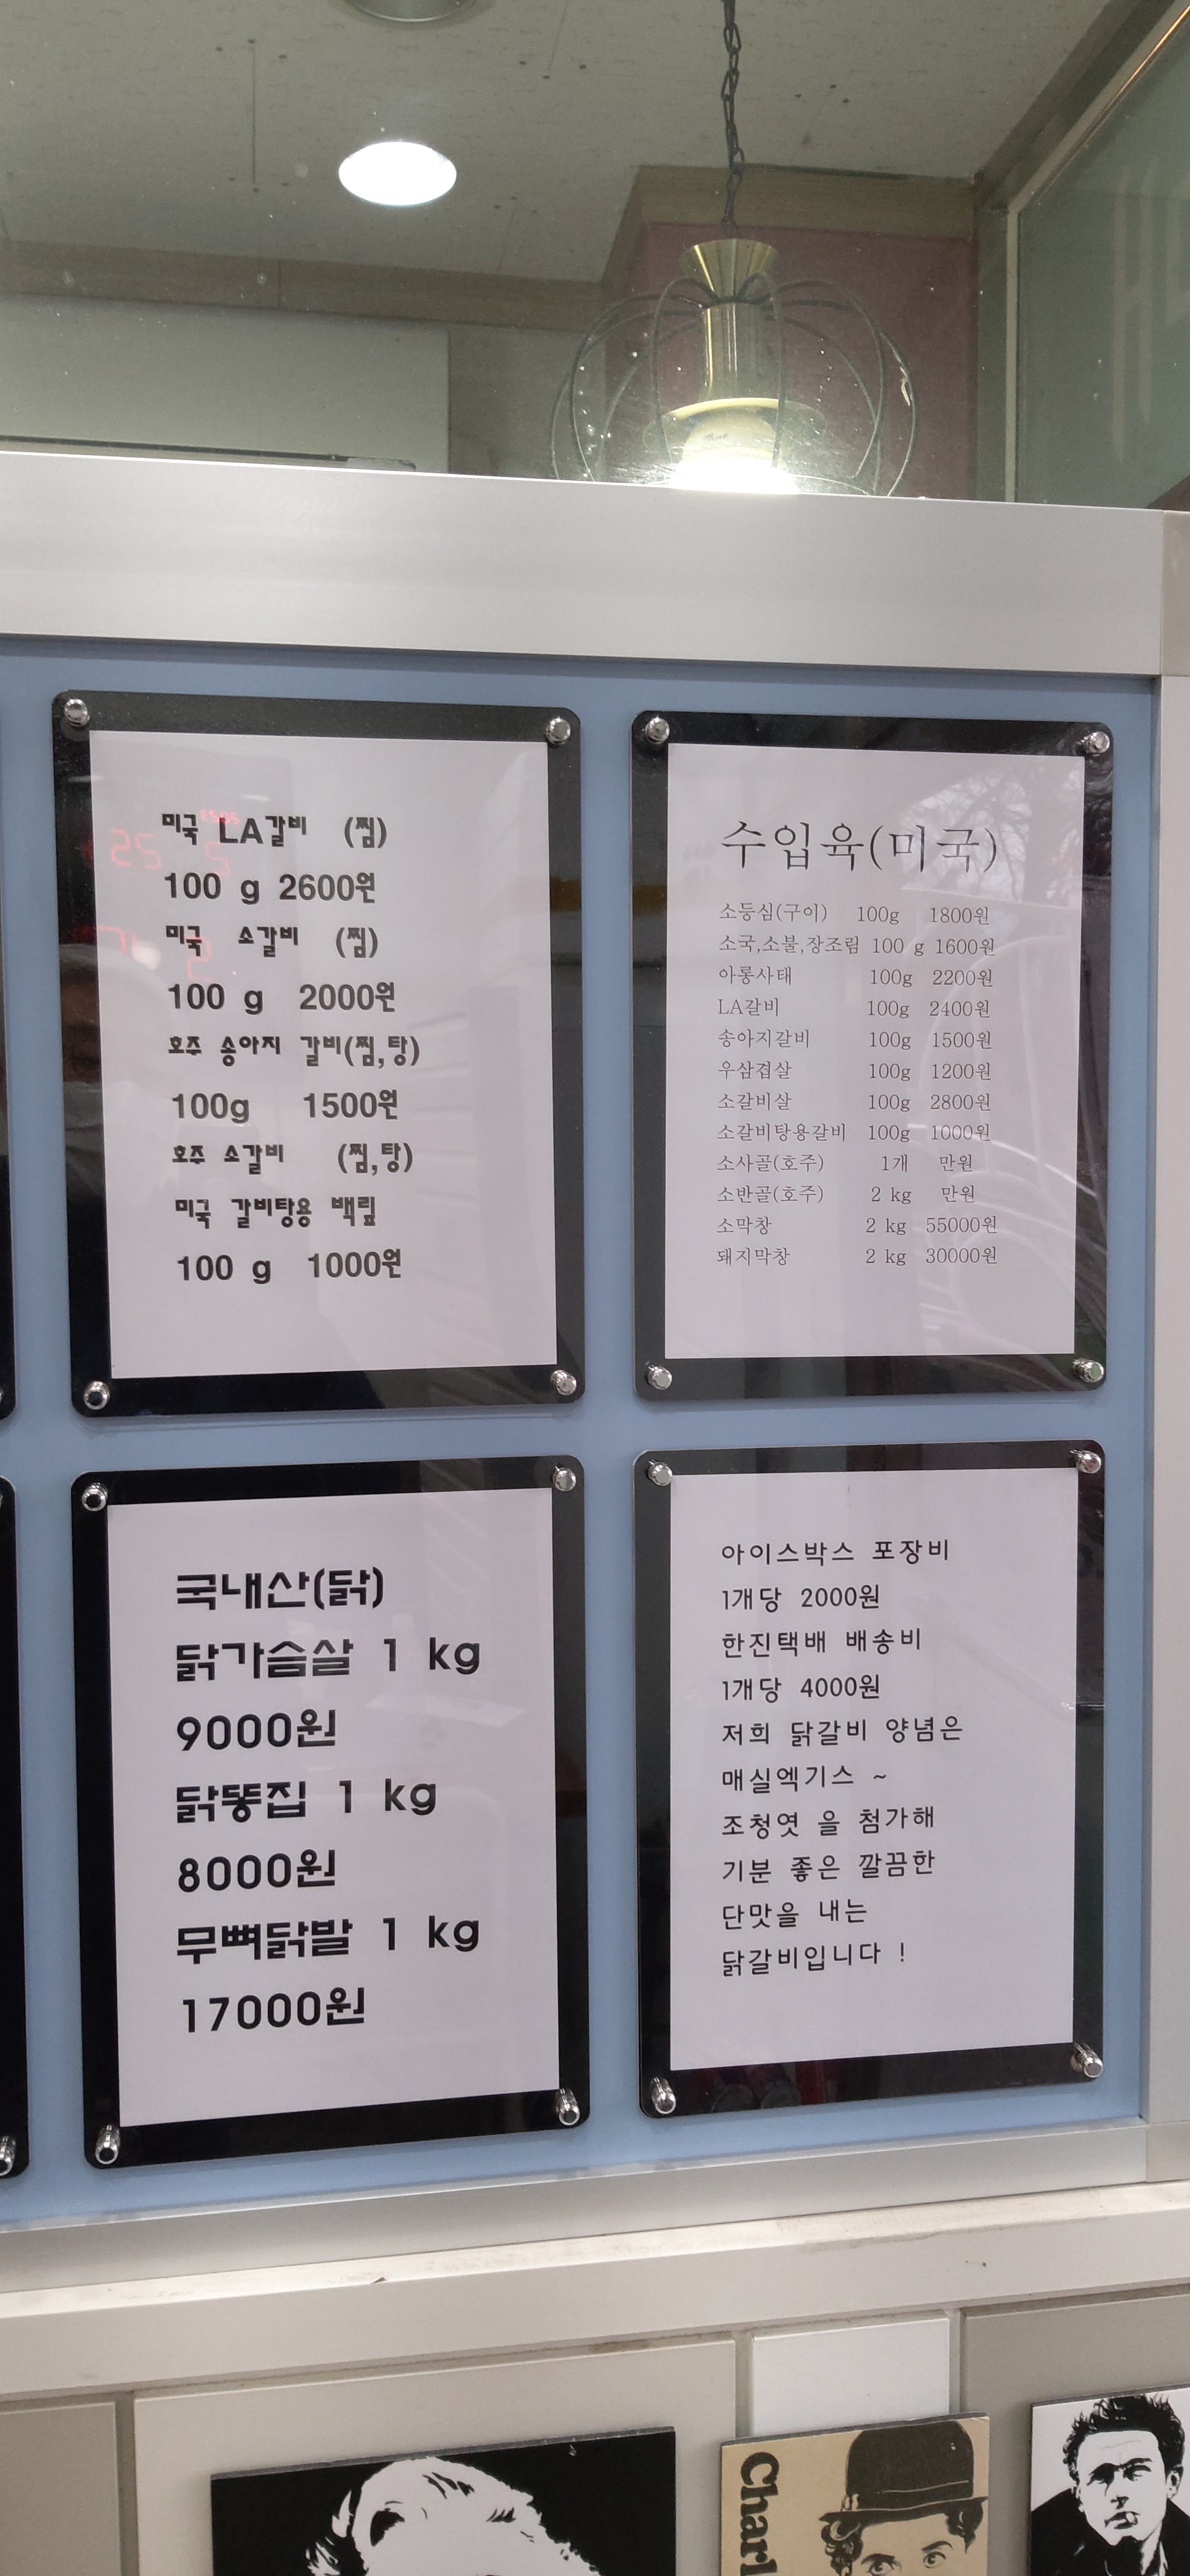 미국 LA갈비 (찜)
100 g 2600원
미국 소갈비 (찜)
100 g 2000원
호주 송아지 갈비(찜,탕)
100g 1500원
호주 소갈비 (찜,탕)
미국 갈비탕용 백립
100 g 1000원
수입육(미국)
소등심(구이) 100g 1800원
소국,소불,장조림 100 g 1600원
아롱사태 100g 2200원
LA갈비 100g 2400원
송아지갈비 100g 1500원
우삼겹살 100g 1200원
소갈비살 100g 2800원
소갈비탕용갈비 100g 1000원
소사골(호주) 1개 만원
소반골(호주) 2 kg 만원
소막창 2 kg 55000원
돼지막창 2 kg 30000원
국내산(닭)
닭가슴살 1 kg
9000원
닭똥집 1 kg
8000원
무뼈닭발 1 kg
17000원
아이스박스 포장비
1개당 2000원
한진택배 배송비
1개당 4000원
저희 닭갈비 양념은
매실엑기스 ~
조청엿 을 첨가해
기분 좋은 깔끔한
단맛을 내는
닭갈비입니다 !
Charl